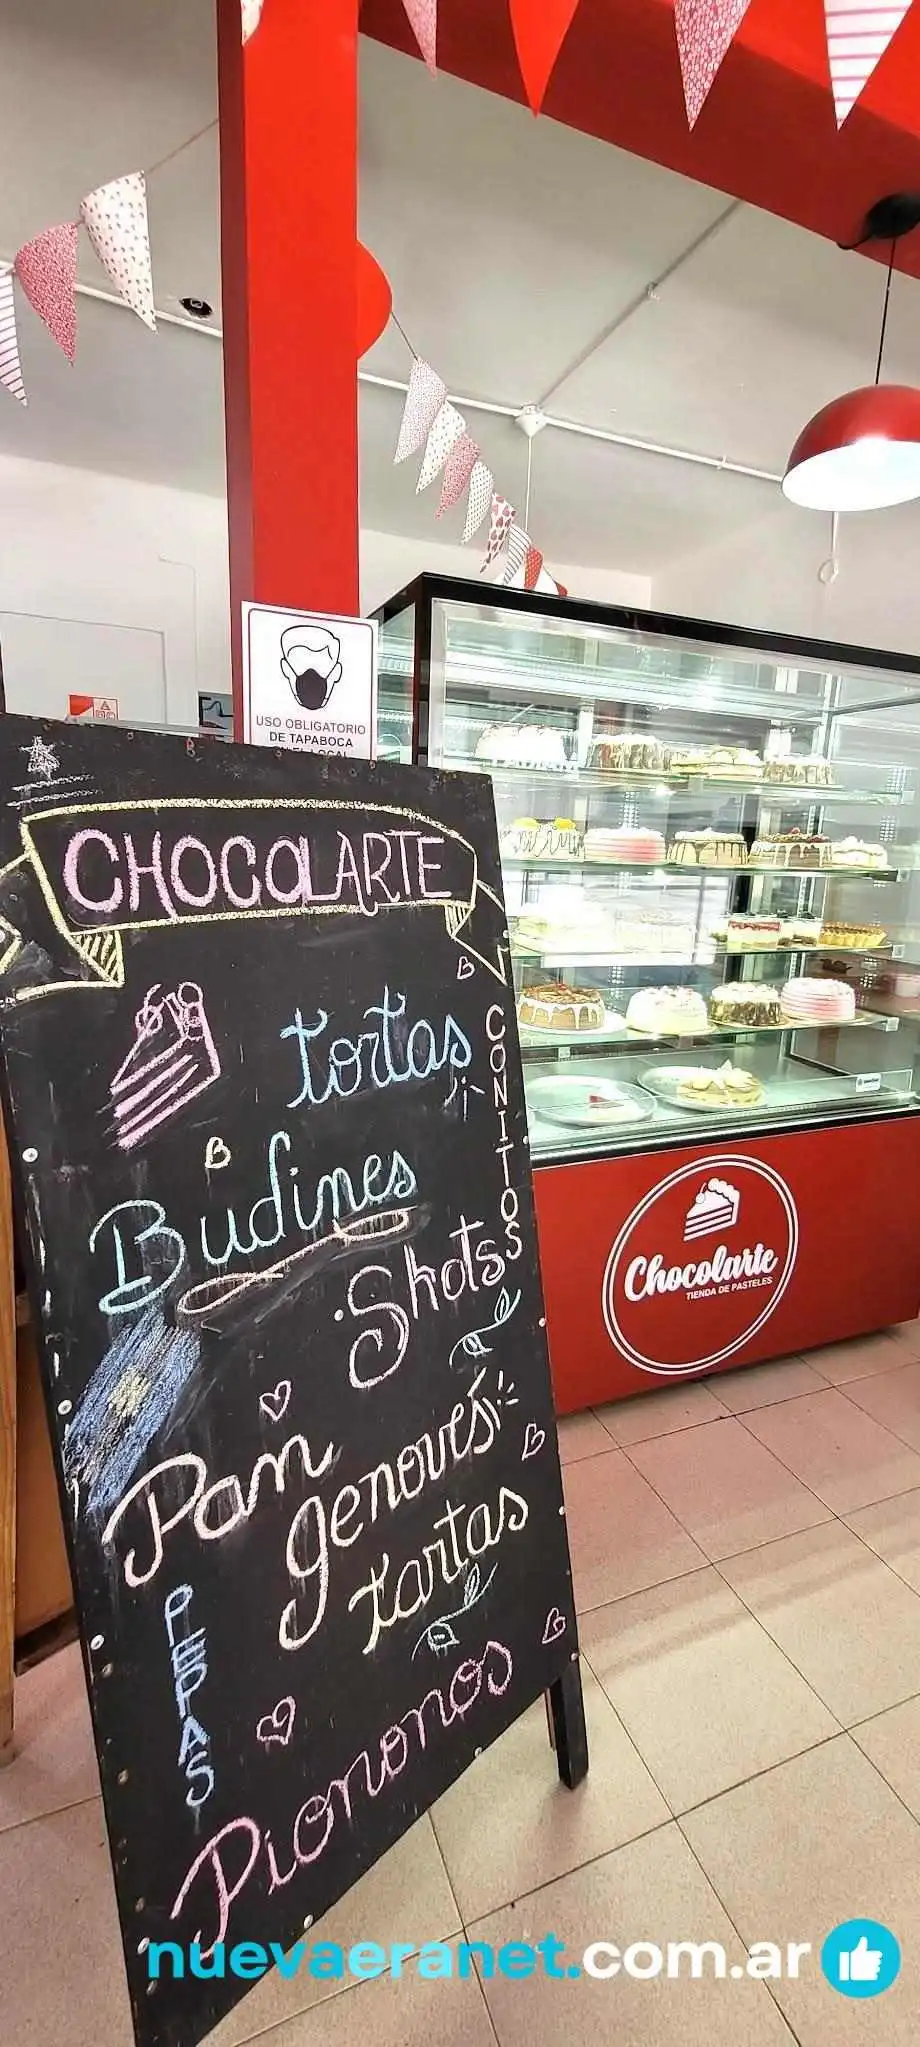 USO OBLIGATORIO
DE TAPABOCA
CHOCOLARTE
tortas
CONITOS
Budines
Shots
Pan
genovés
tartas
PEPAS
Piononos
Chocolarte
TIENDA DE PASTELES
nuevaeranet.com.ar